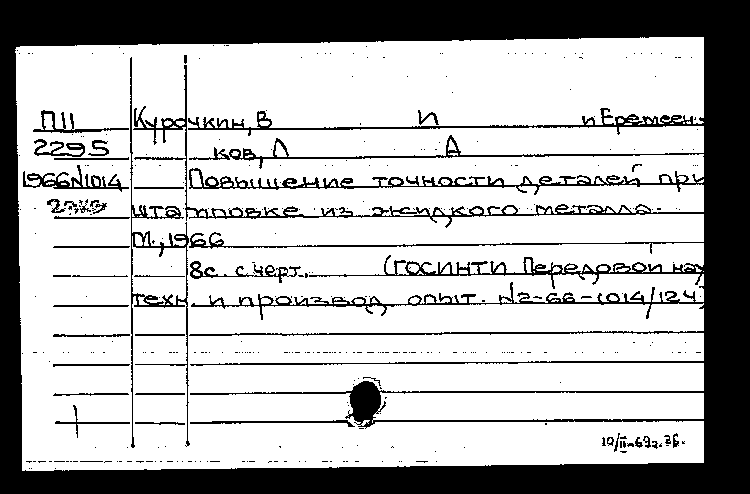 П11 Курочкин, В И и Еремеен-
2295 ков, Л А
1966N1014 Повышение точности деталей при
штамповке из жидкого металла.
М., 1966
8с. с черт. (ГОСИНТИ Передовой науч
техн. и производ. опыт. N2-66-1014/124)
10/II-69г. зб.